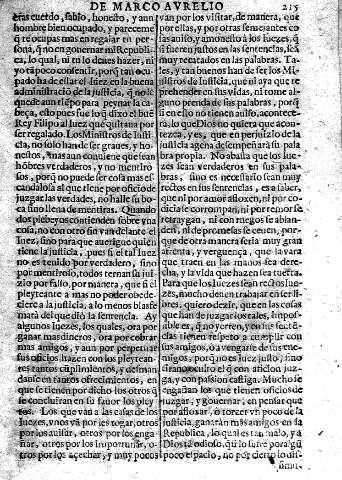 DE MARCO AVRELIO
215
eras cuerdo, sabio, honesto, y aun
hombre bien ocupado, y pareceme
q̃ te ocupas mas en regalar tu per
sona, q̃ no en gouernar mi Republi
ca, lo qual, ni tu lo deues hazer, ni
yo tãpoco consentir, porq̃ tan ocu
pado ha de estar el Iuez en la buena
administracion de la justicia, q̃ no le
quede aun tiẽpo para peynar la ca
beça, esto pues fue lo q̃ dixo el bué
Rey Filipo al Iuez que quitaua por
ser regalado. Los Ministros de Iusti
cia, no solo han de ser graues, y ho
nestos, mas aun conuiene que sean
hõbres verdaderos, y no mentiro
sos, porq̃ no puede ser cosa mas es
candalosa al que tiene por oficio de
juzgar las verdades, no halle su bo
ca sino llena de mentiras. Quando
dos plebeyos contienden sobre vna
cosa, no con otro fin van delante el
Iuez, sino para que auerigue quien
tiene la justicia, pues si el tal Iuez
no es tenido por verdadero, sino
por mentiroso, todos ternan su jui
zio por falso, por manera, que si el
pleyteante a mas no poder obede
ciere a la justicia, a lo menos blasfe
mara del que dio la sentencia. Ay
algunos Iuezes, los quales, ora por
ganar mas dineros, ora por cobrar
mas amigos, y aun por perpetuar
sus oficios, hazen con los pleytean
tes tantos cũplimientos, y desman
danse en tantos ofrecimientos, en
que se tienen por dicho los otros q̃
se concluiran en su fauor los pleyi
tos. Los que van a las casas de los
Iuezes, vnos vã por les rogar, otros
por los auisar, otros por los enga
ñar, otros por los importunar, o
tros por los acechar, y muy pocos
van por los visitar, de manera, que
por ellas, y por otras semejantes co
sas auiso, y amonesto a los Iuezes, q̃
si fueren justos en las sentencias, sea
muy recatados en las palabras. Ta
les, y tan buenos han de ser los Mi
nistros de Iusticia, que ni aya que re
prehender en sus vidas, ni tome al
guno prenda de sus palabras, porq̃
si en esto no tienen auiso, acontece
rá, lo que Dios no quiera que acon
tezca, y es, que en perjuizio de la
justicia agena desempeñará su pala
bra propia. No abasta que los Iue
zes sean verdaderos en sus pala
bras, sino es necessario sean muy
rectos en sus sentencias, es a saber,
que ni por amor afloxen, ni por co
dicia se corrompan, ni por temor se
retraygan, ni con ruegos se aban
den, ni de promesas se ceuen, por
que de otra manera seria muy gran
afrenta, y verguença, que la vara
que traen en las manos sea dere
cha, y la vida que hazen sea tuerta.
Para que los Iuezes sean rectos Iue
zes, mucho deuen trabajar en ser li
bres, quiero dezir, que en las cosas
que han de juzgar los tales, impos
sible es, q̃ no yerren, y en sus sentẽ
cias tienen respeto a cumplir con
sus amigos, o a vengarse de sus ene
migos, porq̃ no es Iuez justo, sino
tirano oculto el q̃ con aficion juz
ga, y con passion castiga. Mucho se
engañan los que tienen oficios de
juzgar, y gouernar, en pensar que
por afloxar, o torcer vn poco de la
justicia, ganarán mas amigos en la
Republica, lo qual es tan malo, y a
Dios ta odioso, q̃ si lo sufre por al gũ
poco espacio, no por cierto lo dis
simu-